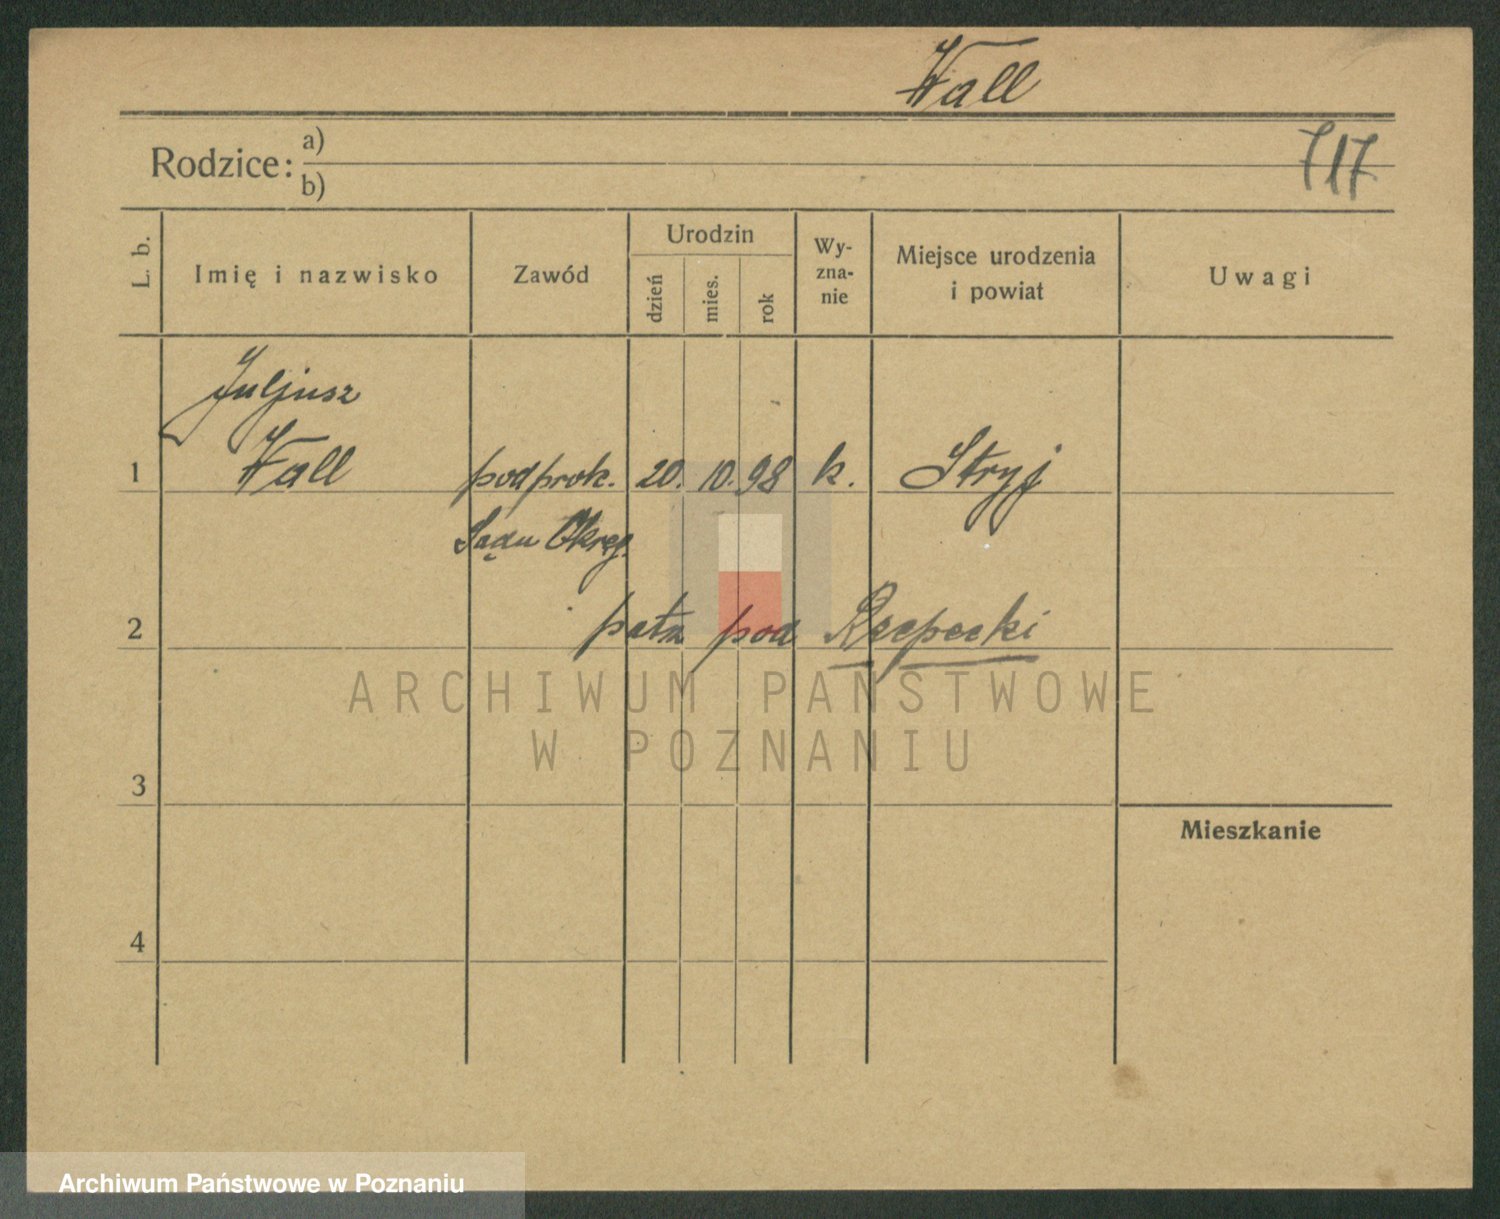 Wall
717
Rodzice: a)
b)
L. b.
Imię i nazwisko
Zawód
Urodzin
dzień
mies.
rok
Wy-
zna-
nie
Miejsce urodzenia
i powiat
Uwagi
Juljusz
1 Wall podprok. 20. 10. 98 k. Stryj
Sądu Okręg.
2 patrz pod Rzepecki
ARCHIWUM PAŃSTWOWE
W POZNANIU
3
Mieszkanie
4
Archiwum Państwowe w Poznaniu